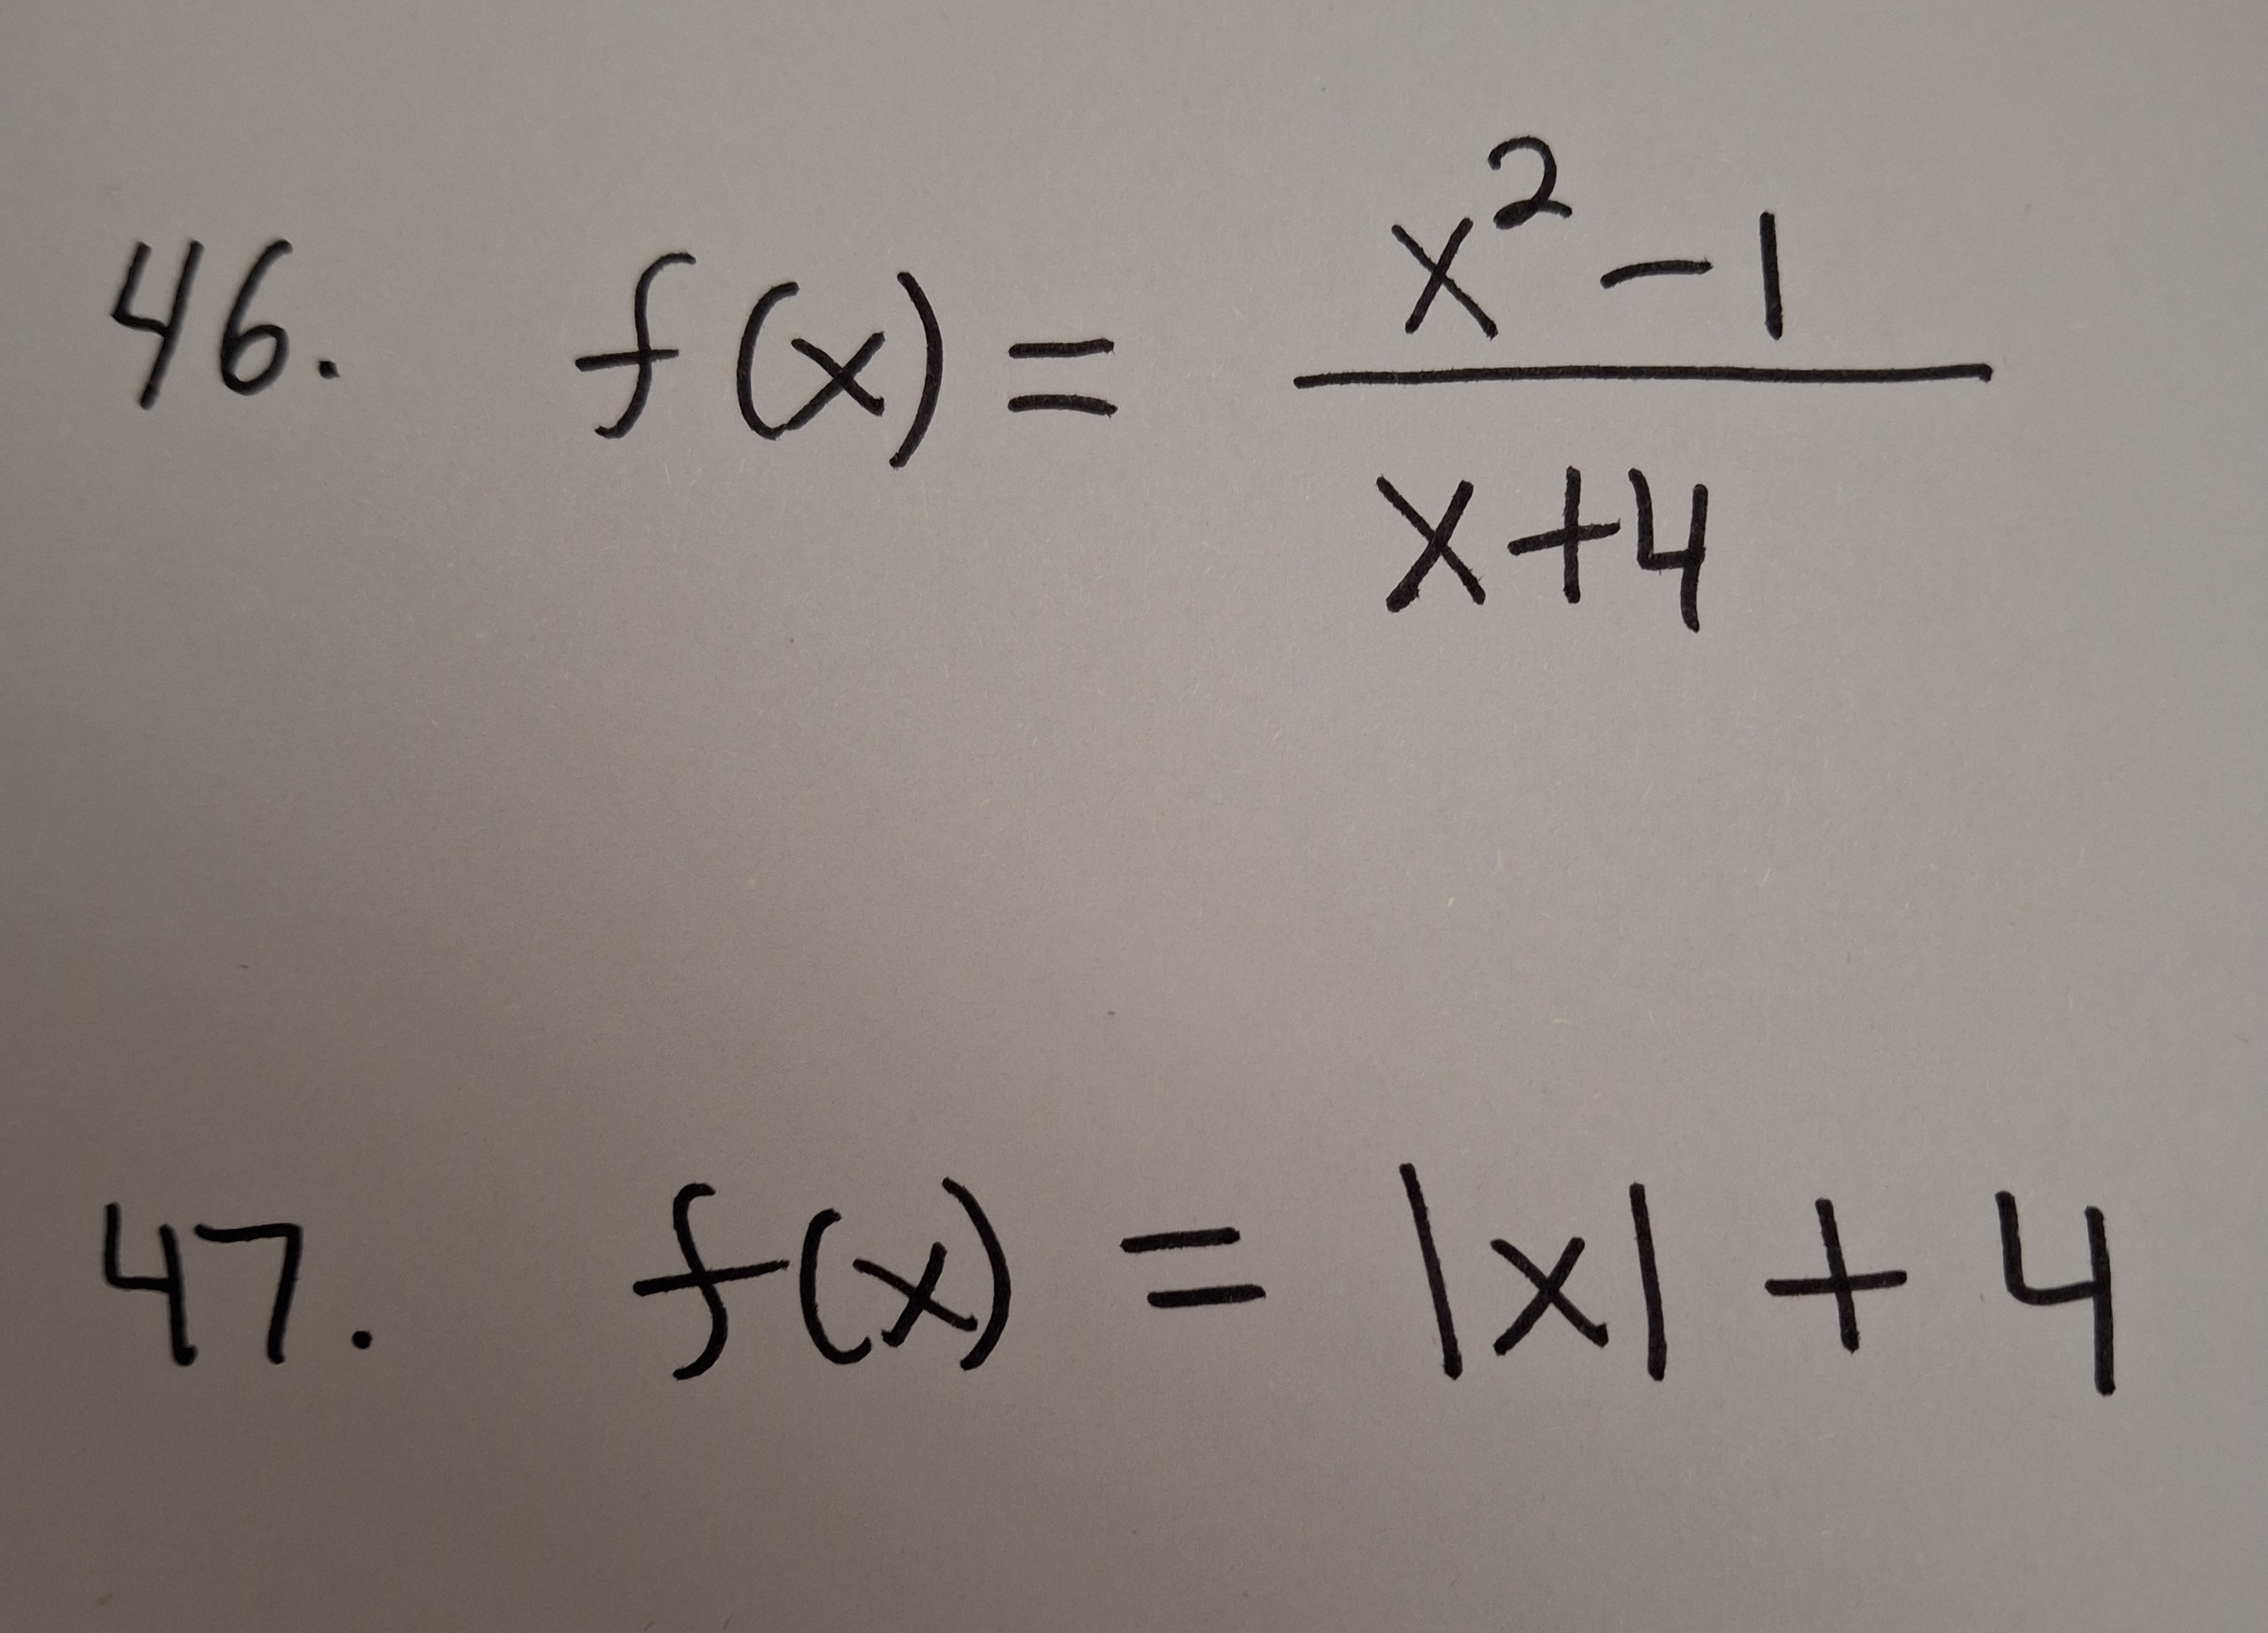 46. f(x) = x² - 1 / x + 4
47. f(x) = |x| + 4